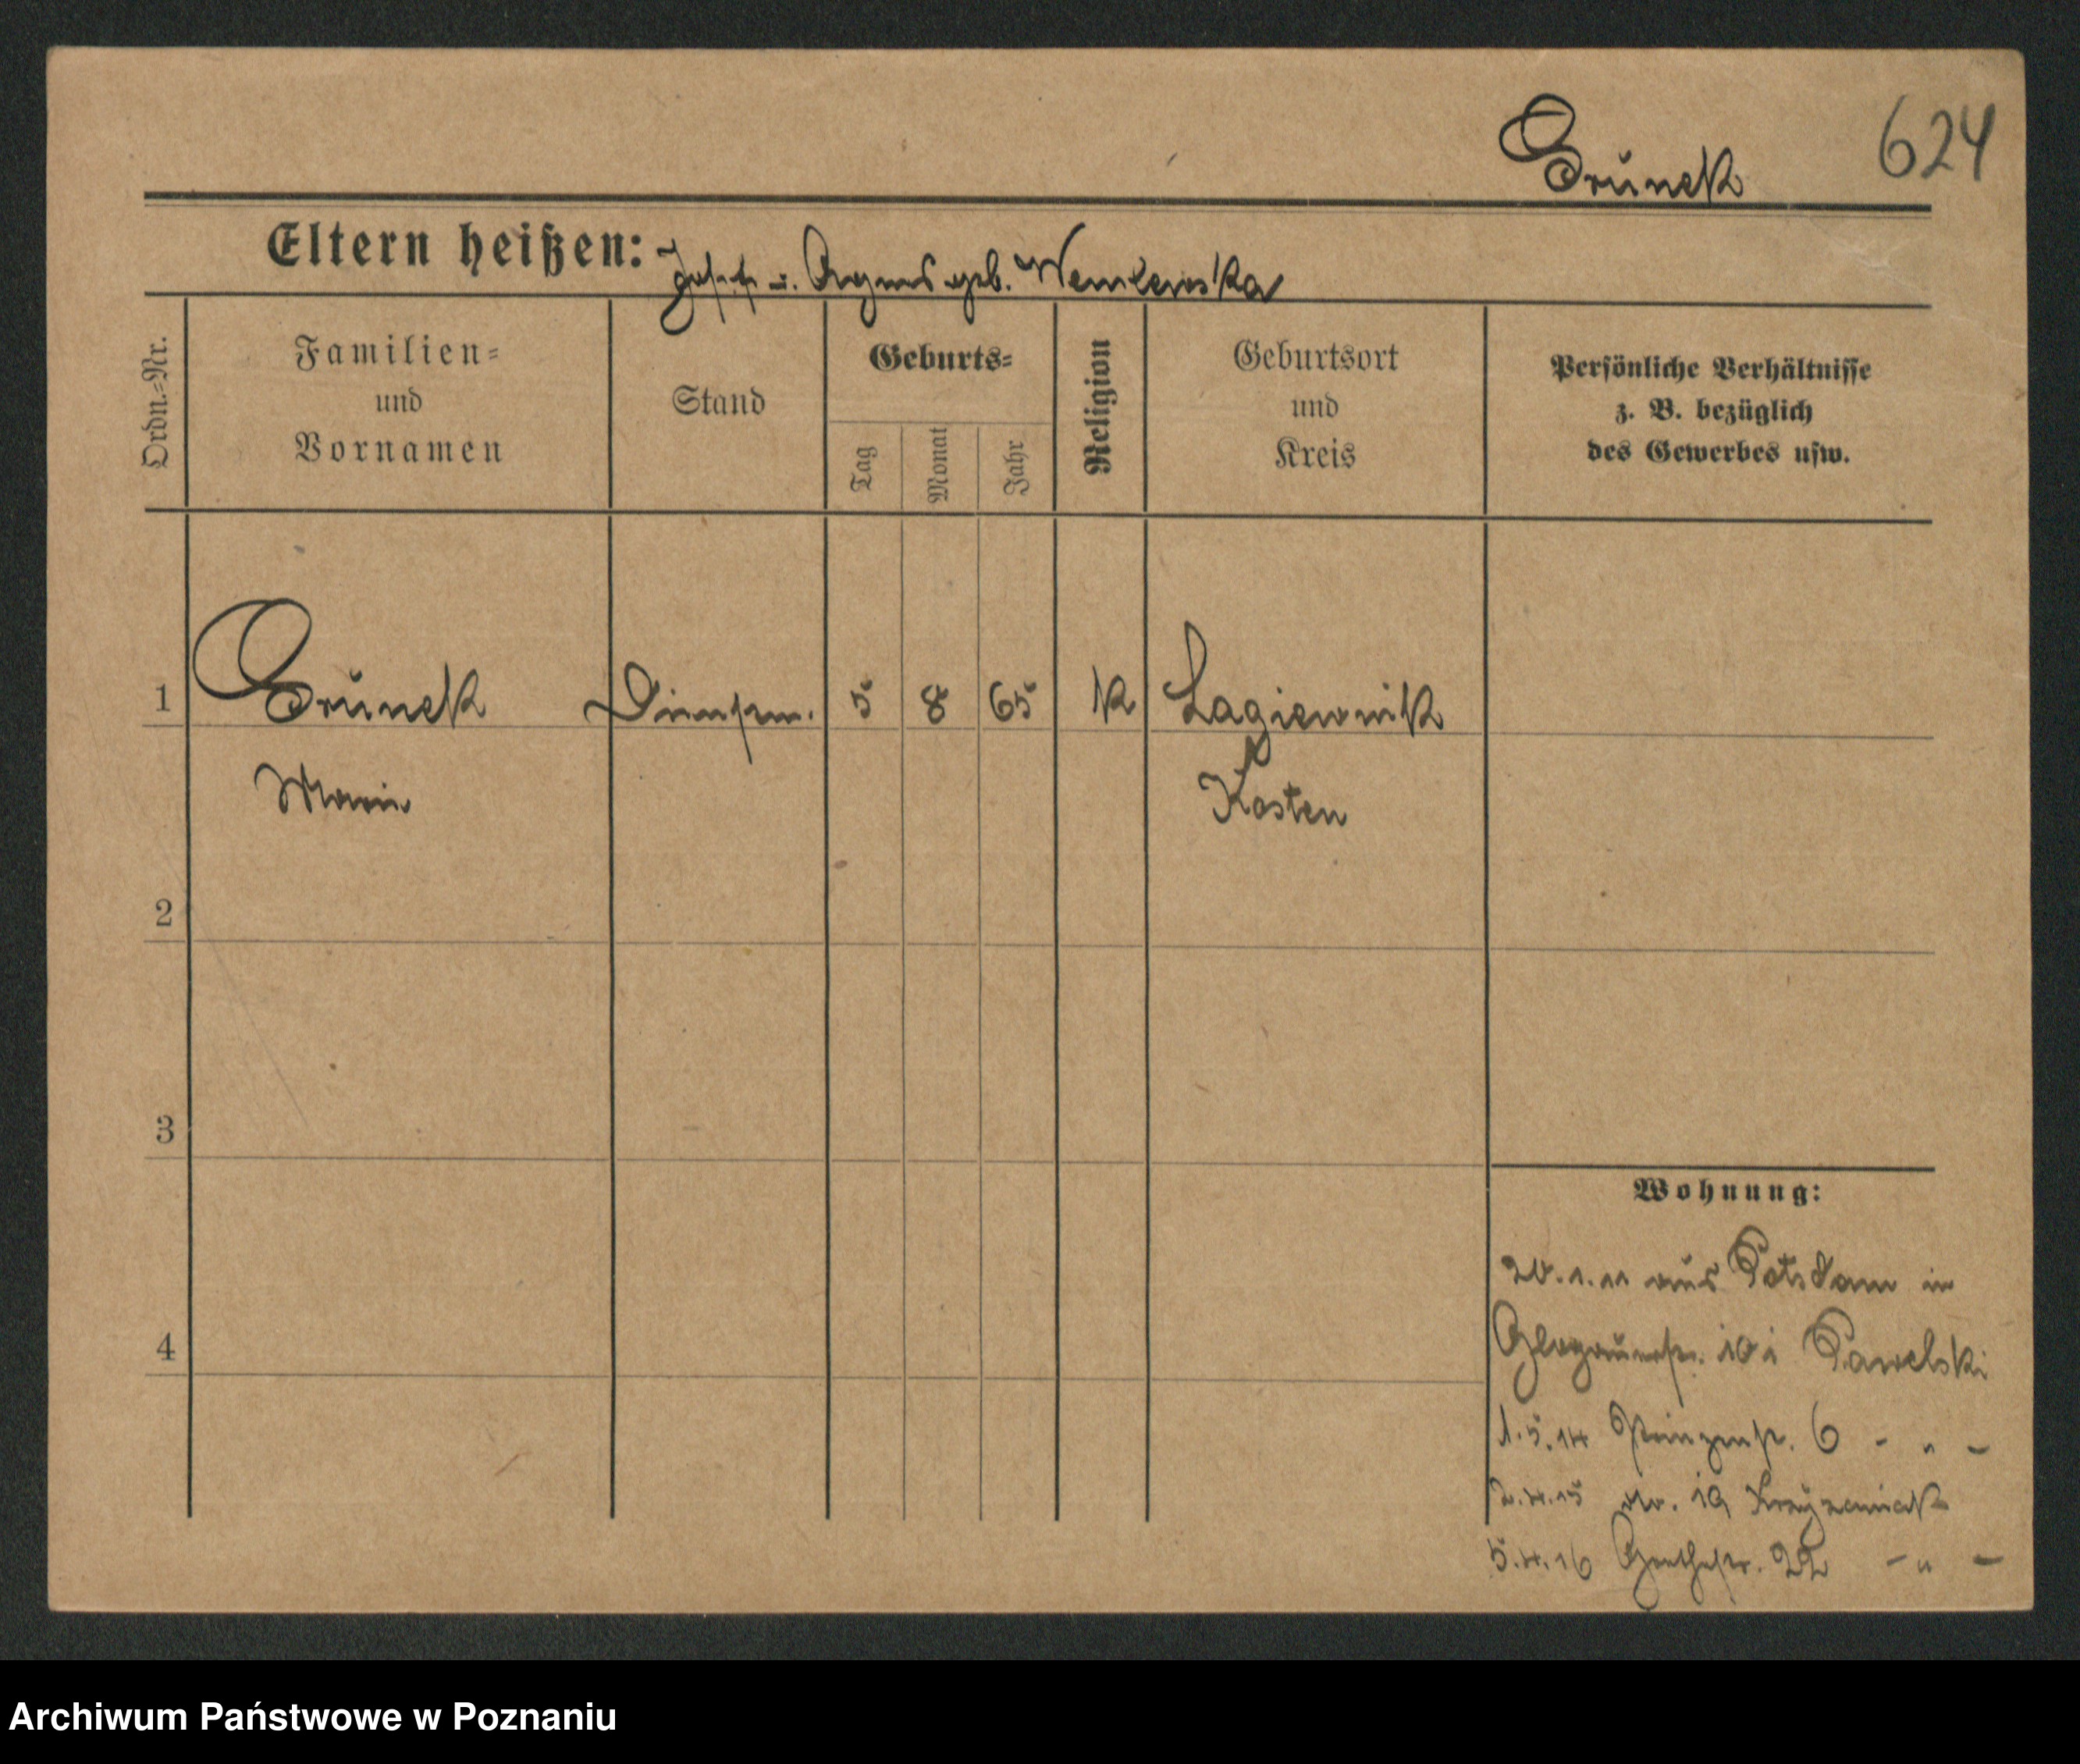 624
Grunek
Eltern heißen: Josef u. Agnes geb. Wemlewska
Ordn.-Nr.
Familien-
und
Vornamen
Stand
Geburts-
Tag
Monat
Jahr
Religion
Geburtsort
und
Kreis
Persönliche Verhältnisse
z. B. bezüglich
des Gewerbes usw.
1 Grunek 5 8 65 K Lagiewnik
Marie Kosten
2
3
4
Wohnung:
20.1.11 aus Potsdam in
Glogauerstr. 101 Pawelski
1.5.14 Prinzenstr. 6 - " -
2.4.15 Nr. 19 Krzyzaniak
5.4.16 Goethestr. 22 - " -
Archiwum Państwowe w Poznaniu